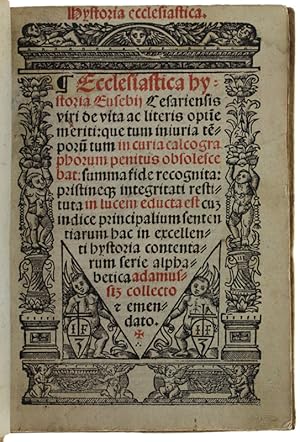 Hystoria ecclesiastica.
¶ Ecclesiastica hy-
storia Eusebij Cesariensis
viri de vita ac literis optie
meriti: que tum iniuria tē-
porū tum in curia calcogra
phorum penitus obsolesce
bat: summa fide recognita:
pristineqȝ integritati resti-
tuta in lucem educta est cuȝ
indice principalium senten
tiarum hac in excellen-
ti hystoria contenta-
rum serie alpha-
betica adamus-
siȝ collecto
⁊ emen-
dato.
I F
I F